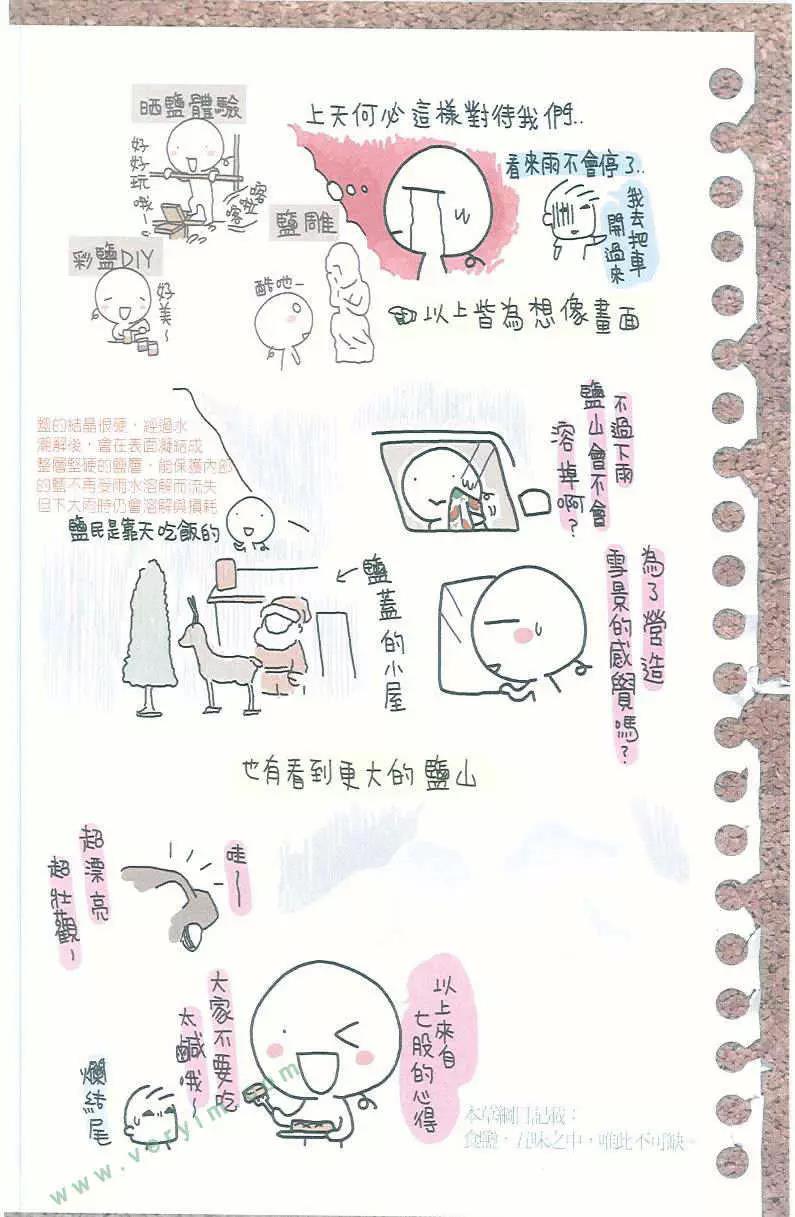 晒鹽體驗
好好玩哦~
鹽雕
彩鹽DIY
好美~
酷吔~
上天何必這樣對待我們..
看來雨不會停了..
我去把車
開過來
以上皆為想像畫面
鹽的結晶很硬，經過水
潮解後，會在表面凝結成
整層堅硬的鹽層，能保護內部
的鹽不再受雨水溶解而流失
但下大雨時仍會溶解與損耗
鹽民是靠天吃飯的
不過下雨
鹽山會不會
溶掉啊?
鹽蓋的小屋
為了營造
雪景的感覺嗎?
也有看到更大的鹽山
哇~
超漂亮
超壯觀~
以上來自
七股的心得
大家不要吃
太鹹哦~
爛結尾
本草綱目記載：
食鹽，五味之中，唯此不可缺。
www.veryim.com